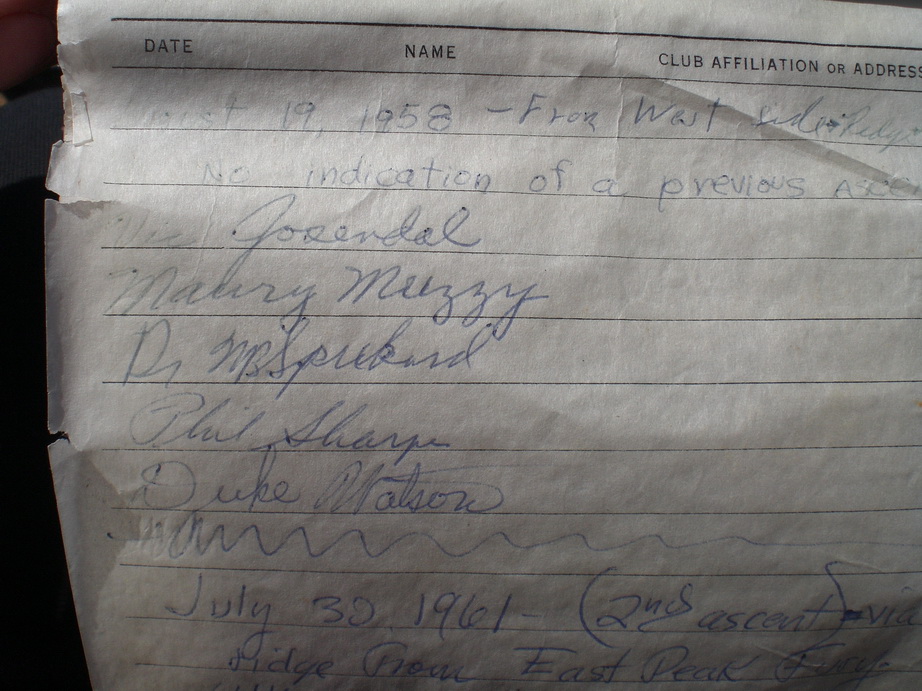 DATE NAME CLUB AFFILIATION OR ADDRESS
19, 1958 - From West Side Ridge
No indication of a previous asce
Vic Josendal
Maury Muzzy
Dr WB Spickard
Phil Sharpe
Duke Watson
July 30 1961 - (2nd ascent) - via
ridge from East Peak Fury.